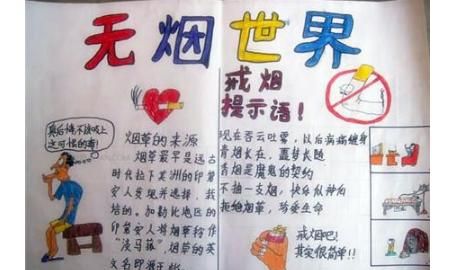 无烟世界
戒烟
提示语！
真后悔不该吸上
这可恨的毒！
烟草的来源
烟草最早是远古
时代拉丁美洲的印第
安人发现并选择，栽
培的。加勒比地区的
印第安人将烟草称作
烟草的英
现在吞云吐雾，以后病痛缠身
青烟长在，噩梦长随
香烟是魔鬼的契约
不抽一支烟，快乐似神仙
拒绝烟草，珍爱生命
戒烟吧！
其实很简单！！